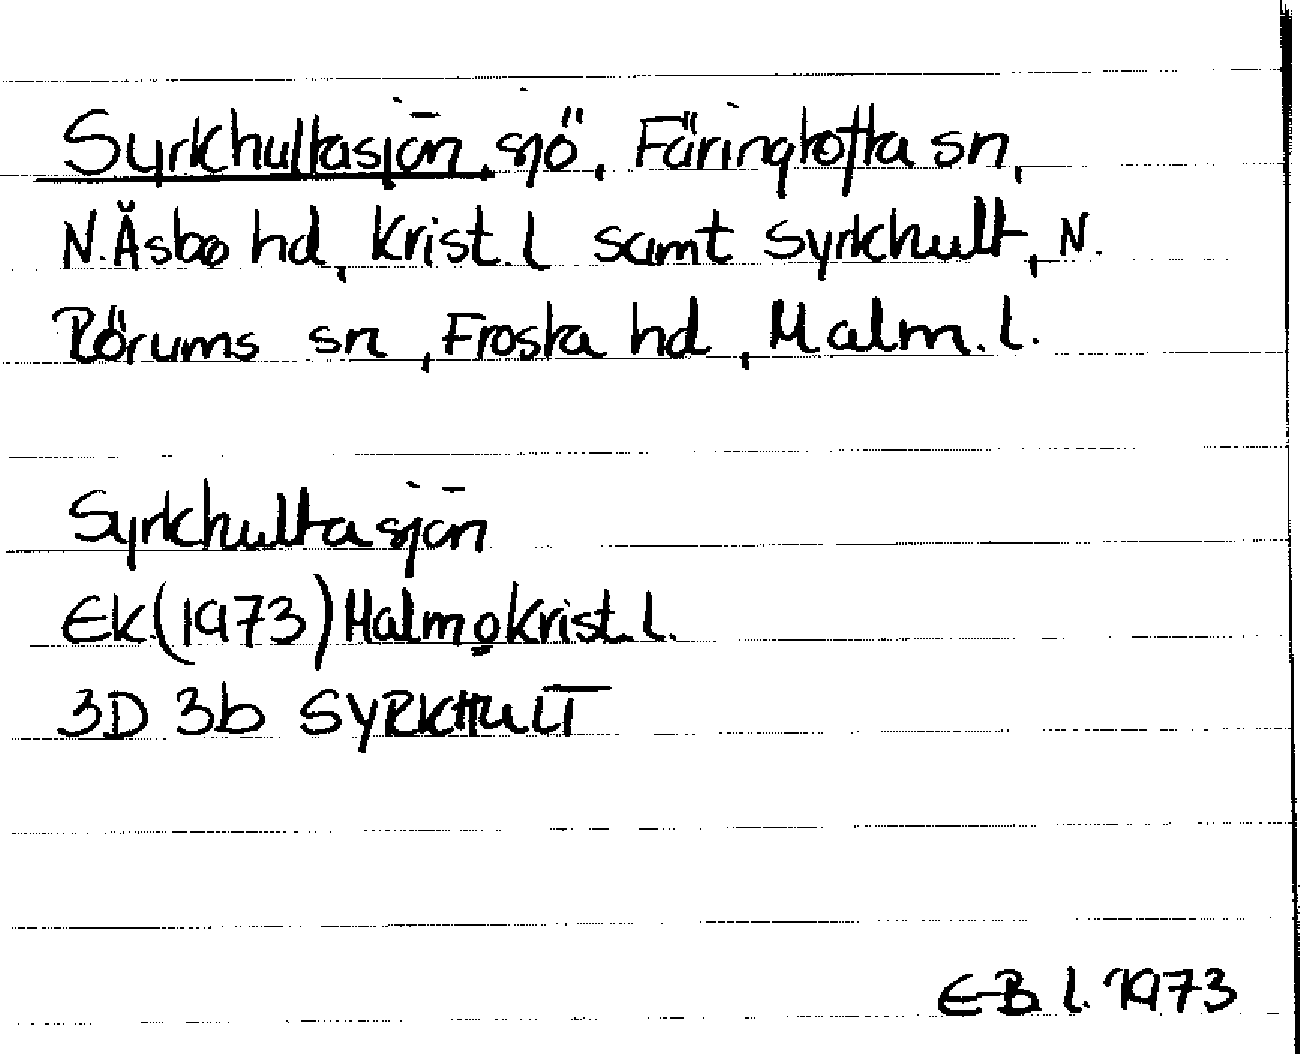 Syrkhultasjön, sjö, Färingtofta sn,
N. Åsbo hd, Krist. l samt Syrkhult, N.
Rörums sn, Frosta hd, Malm. l.
Syrkhultasjön
Ek (1973) Malm o Krist. l.
3D 3b SYRKHULT
EB l. 1973